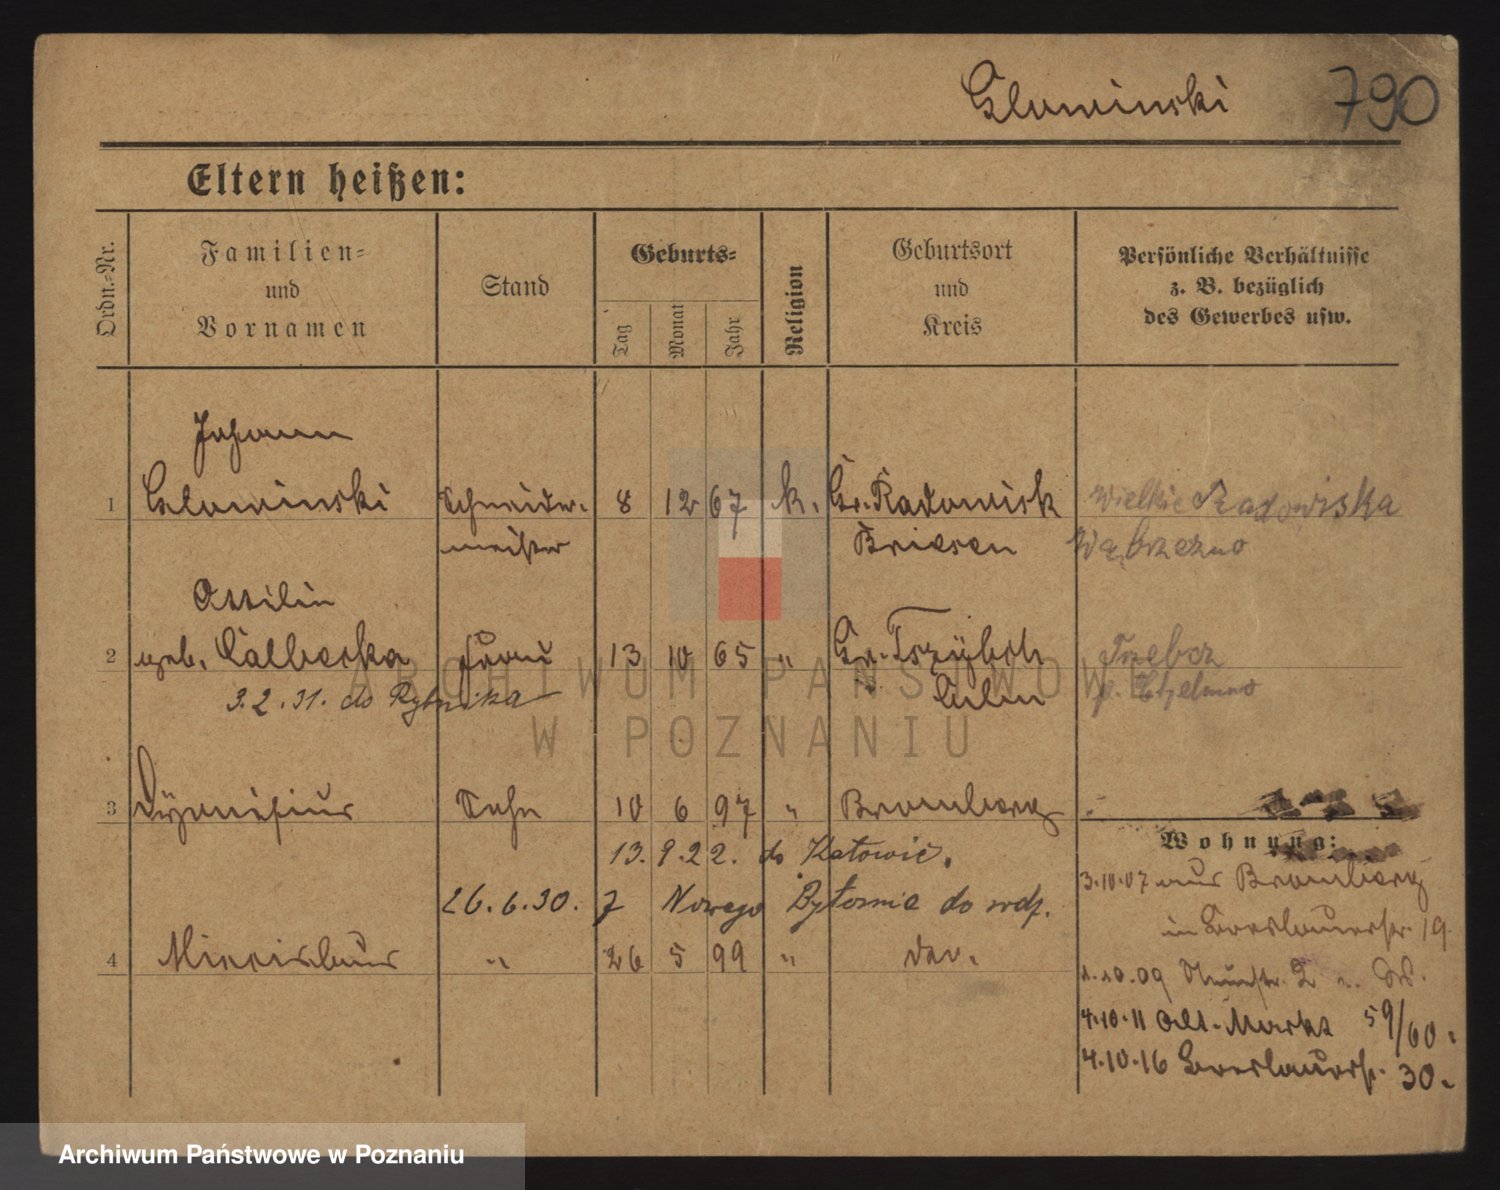 Glowinski 790
Eltern heißen:
Ordn.=Nr.
Familien=
und
Vornamen
Stand
Geburts=
Tag
Monat
Jahr
Religion
Geburtsort
und
Kreis
Persönliche Verhältnisse
z. B. bezüglich
des Gewerbes usw.
Johann
1 Glowinski Schneider- 8 12 67 k. Gr. Radowisk Wielkie Radowiska
meister Briesen Wąbrzezno
Ottilie
2 geb. Calbecka Frau 13 10 65 " Gr. Trzybcz Trzebcz
3.2.31. do Rybnika Culm p. Chełmno
3 Dyonisius Sohn 10 6 97 " Bromberg
Wohnung:
13.9.22. do Katowic.
3.10.07 aus Bromberg
26.6.30. z Nowego Bytomia do
in Breslauerstr. 19.
4 " 26 5 99 " do.
1.10.09
4.10.11 Alt. Markt 59/60.
4.10.16 Breslauerstr. 30.
ARCHIWUM PAŃSTWOWE
W POZNANIU
Archiwum Państwowe w Poznaniu